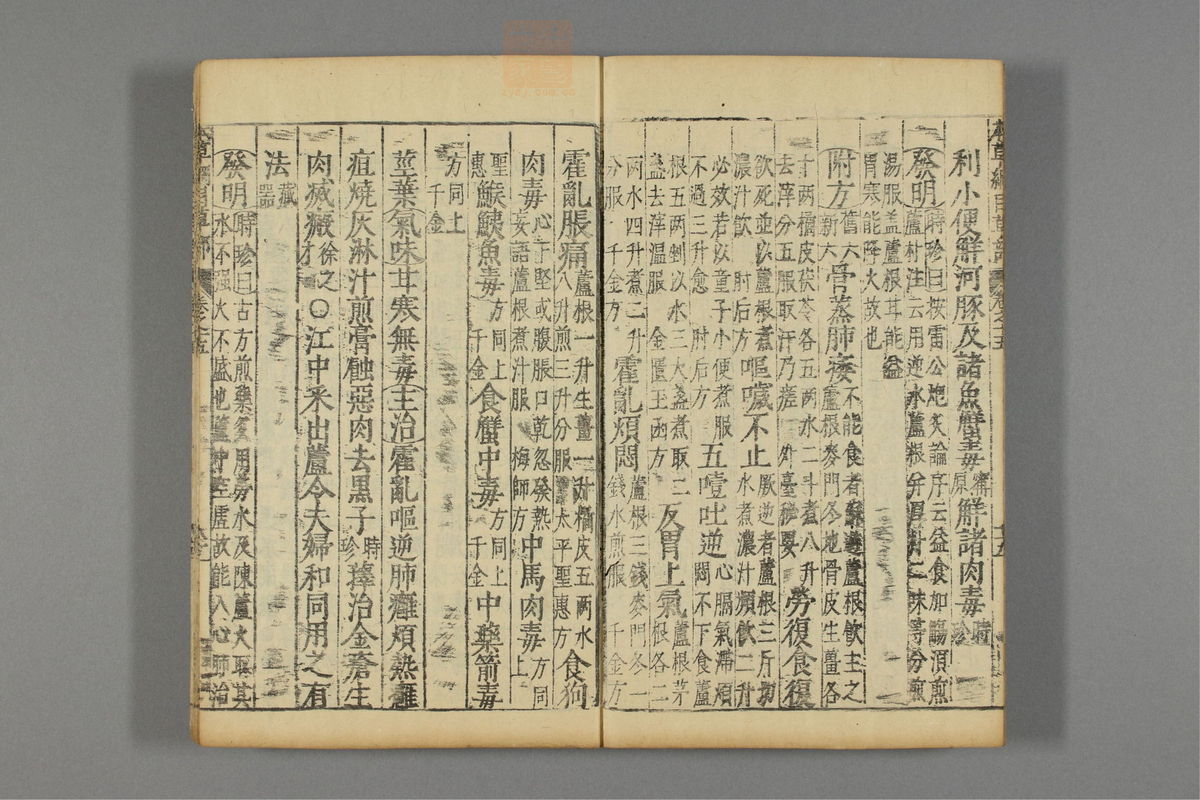 利小便解河豚及諸魚蟹毒 解諸肉毒 時珍
發明 時珍曰按雷公炮炙論序云益食加觴須煎
蘆朴注云用逆水蘆根并厚朴二味等分煎
湯服蓋蘆根甘能益
胃寒能降火故也
附方 舊六
新六 骨蒸肺痿 不能食者蘆根飲主之
蘆根麥門冬地骨皮生薑各
十兩橘皮茯苓各五兩水二斗煮八升
去滓分五服取汗乃瘥 外臺秘要 勞復食復
欲死並以蘆根煮
濃汁飲 肘后方 嘔噦不止 厥逆者蘆根三斤切
水煮濃汁頻飲二升
必效若以童子小便煮服
不過三升愈 肘后方 五噎吐逆 心膈氣滯煩
悶不下食蘆
根五兩剉以水三大盞煮取二
盞去滓溫服 金匱玉函方 反胃上氣 蘆根茅
根各二
兩水四升煮二升
分服 千金方 霍亂煩悶 蘆根三錢麥門冬一
錢水煎服 千金方
霍亂脹痛 蘆根一升生薑一升橘皮五兩水
八升煎三升分服 太平聖惠方 食狗
肉毒 心下堅或腹脹口乾忽發熱
妄語蘆根煮汁服 梅師方 中馬肉毒 方同
上
聖
惠 鯸鮧魚毒 方同上
千金 食蟹中毒 方同上
千金 中藥箭毒
方同上
千金
莖葉 氣味 甘寒無毒 主治 霍亂嘔逆肺癰煩熱癰
疽燒灰淋汁煎膏蝕惡肉去黑子 時
珍 籜治金瘡生
肉滅瘢 徐之
才 〇江中采出蘆令夫婦和同用之有
法 藏
器
發明 時珍曰古方煎藥多用勞水及陳蘆火取其
水不强火不盛也蘆中空虛故能入心肺治